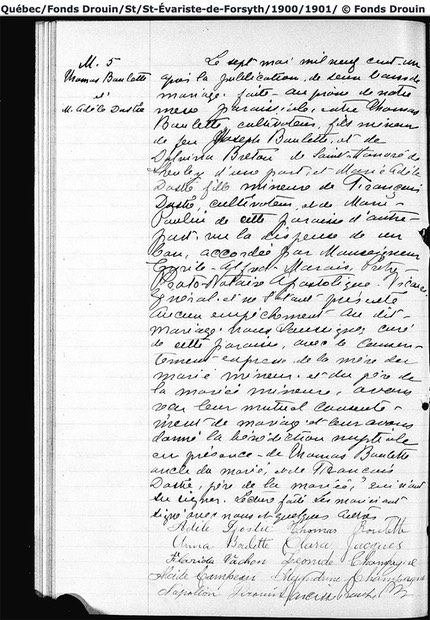 Québec/Fonds Drouin/St/St-Évariste-de-Forsyth/1900/1901/ © Fonds Drouin
M. 5
Thomas Boulette
et
M. Adèle Dostie
Le sept mai mil neuf cent un
après la publication de deux bans de
mariage faite au prône de notre
messe paroissiale, entre Thomas
Boulette, cultivateur, fils mineur
de feu Joseph Boulette, et de
Delvina Breton de Saint-Honoré de
Shenley d'une part, et Marie Adèle
Dostie fille mineure de François
Dostie, cultivateur, et de Marie
Poulin de cette paroisse d'autre
part, vu la dispense de un
ban, accordée par Monseigneur
Cyrille-Alfred Marois,
Proto-Notaire Apostolique, Vicaire
Général et ne s'étant présenté
aucun empêchement au dit
mariage nous soussigné curé
de cette paroisse, avec le consen-
tement exprès de la mère du
marié mineur et du père de
la mariée mineure, avons
reçu leur mutuel consente-
ment de mariage et leur avons
donné la bénédiction nuptiale
en présence de Thomas Boulette
oncle du marié, et de François
Dostie, père de la mariée,
signer. Lecture faite Les mariés ont
signé avec nous et quelques autres
Adèle Dostie Thomas Boulette
Anna Boulette Clara Jacques
Florida Vachon Léonide Champagne
Champagne
Napoléon